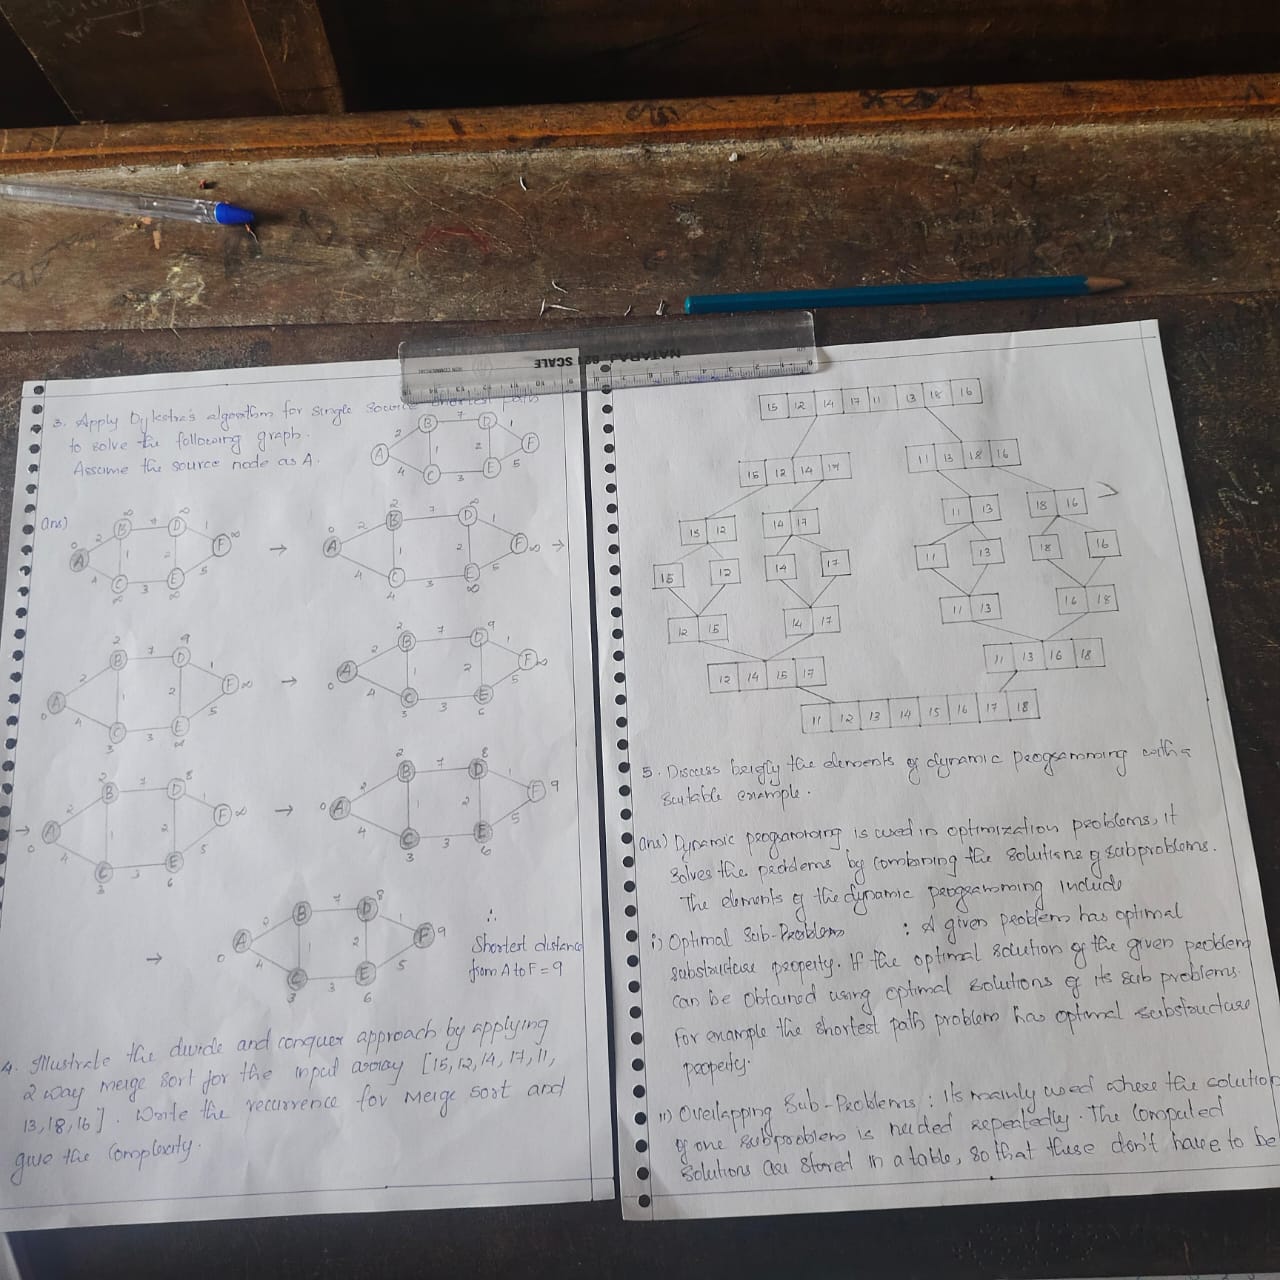 NATARAJ 621 SCALE
3. Apply Dijkstra's algorithm for single source shortest path
to solve the following graph.
Assume the source node as A.
A B C D E F
2 4 1 7 3 2 1 5
Ans)
A B C D E F
0 ∞ ∞ ∞ ∞ ∞
2 4 1 7 3 2 1 5
→
A B C D E F
0 2 4 ∞ ∞ ∞
2 4 1 7 3 2 1 5
→
A B C D E F
0 2 3 9 ∞ ∞
2 4 1 7 3 2 1 5
→
A B C D E F
0 2 3 9 6 ∞
2 4 1 7 3 2 1 5
→
A B C D E F
0 2 3 8 6 ∞
2 4 1 7 3 2 1 5
→
A B C D E F
0 2 3 8 6 9
2 4 1 7 3 2 1 5
→
A B C D E F
0 2 3 8 6 9
2 4 1 7 3 2 1 5
∴
Shortest distance
from A to F = 9
4. Illustrate the divide and conquer approach by applying
2 way merge sort for the input array [15, 12, 14, 17, 11,
13, 18, 16]. Write the recurrence for merge sort and
give the complexity.
15 12 14 17 11 13 18 16
15 12 14 17 11 13 18 16
15 12 14 17 11 13 18 16
15 12 14 17 11 13 18 16
12 15 14 17 11 13 16 18
12 14 15 17 11 13 16 18
11 12 13 14 15 16 17 18
5. Discuss briefly the elements of dynamic programming with a
suitable example.
Ans) Dynamic programming is used in optimization problems, it
solves the problems by combining the solutions of subproblems.
The elements of the dynamic programming include
i) Optimal Sub-Problem : A given problem has optimal
substructure property. If the optimal solution of the given problem
can be obtained using optimal solutions of its sub problems.
For example the shortest path problem has optimal substructure
property.
ii) Overlapping Sub-Problems : Its mainly used where the solution
of one subproblem is needed repeatedly. The Computed
solutions are stored in a table, so that these don't have to be